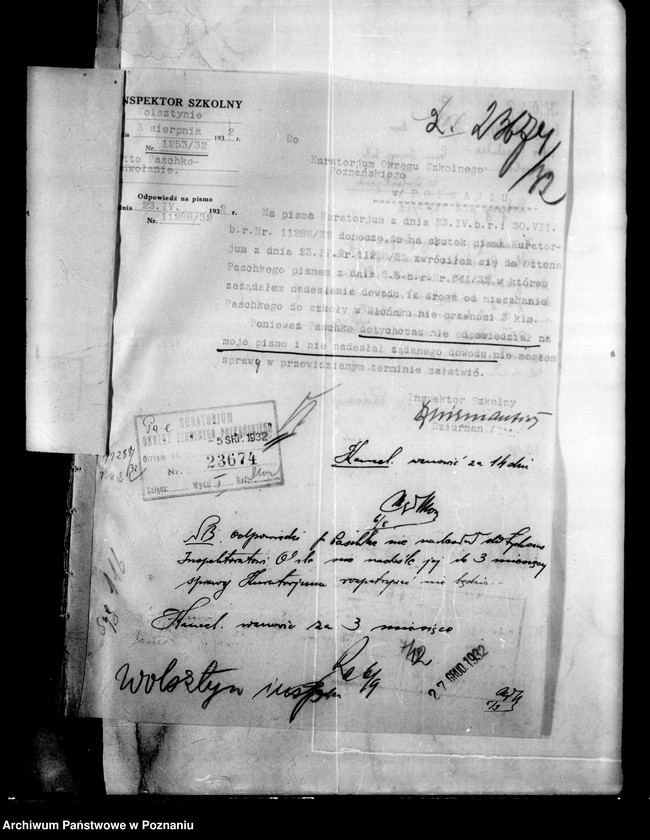 INSPEKTOR SZKOLNY
Wolsztynie
3 sierpnia 1932
Nr. 1253/32
tto Paschke-
dwołanie.
Odpowiedź na pismo
dnia 23.IV. 1932
Nr. 11298/32
2. 23674/32
Do
Kuratorjum Okręgu Szkolnego
Poznańskiego
w POZNANIU
Na pisma Kuratorjum z dnia 23.IV.b.r.i 30.VII.
b.r.Nr. 11298/32 donoszę,że na skutek pisma Kurator-
jum z dnia 23.IV.Nr.11298/32 zwróciłem się do Ottona
Paschkego pismem z dnia b.r.Nr.641/32,w którem
zażądałem nadesłania dowodu,iż droga od mieszkania
Paschkego do szkoły w Błońsku nie przenosi 3 klm.
Ponieważ Paschke dotychczas nie odpowiedział na
moje pismo i nie nadesłał żądanego dowodu,nie mogłem
sprawy w przewidzianym terminie załatwić.
Inspektor Szkolny
Dziurman
KURATORJUM
OKRĘGU SZKOLNEGO POZNAŃSKIEGO
- 5 SRP. 1932
Nr. 23674
Załącz. Wydz. I Ref.
11298/32
Kancel. wznowić za 14 dni
NB. odpowiedzi p. Paschke nie nadesłał dotychczas
Inspektorowi O ile nie nadeśle jej do 3 miesięcy
sprawy Kuratorjum rozpatrywać nie będzie
Kancel. wznowić za 3 miesiące
7/12
27 GRUD. 1932
Wolsztyn insp.
Archiwum Państwowe w Poznaniu